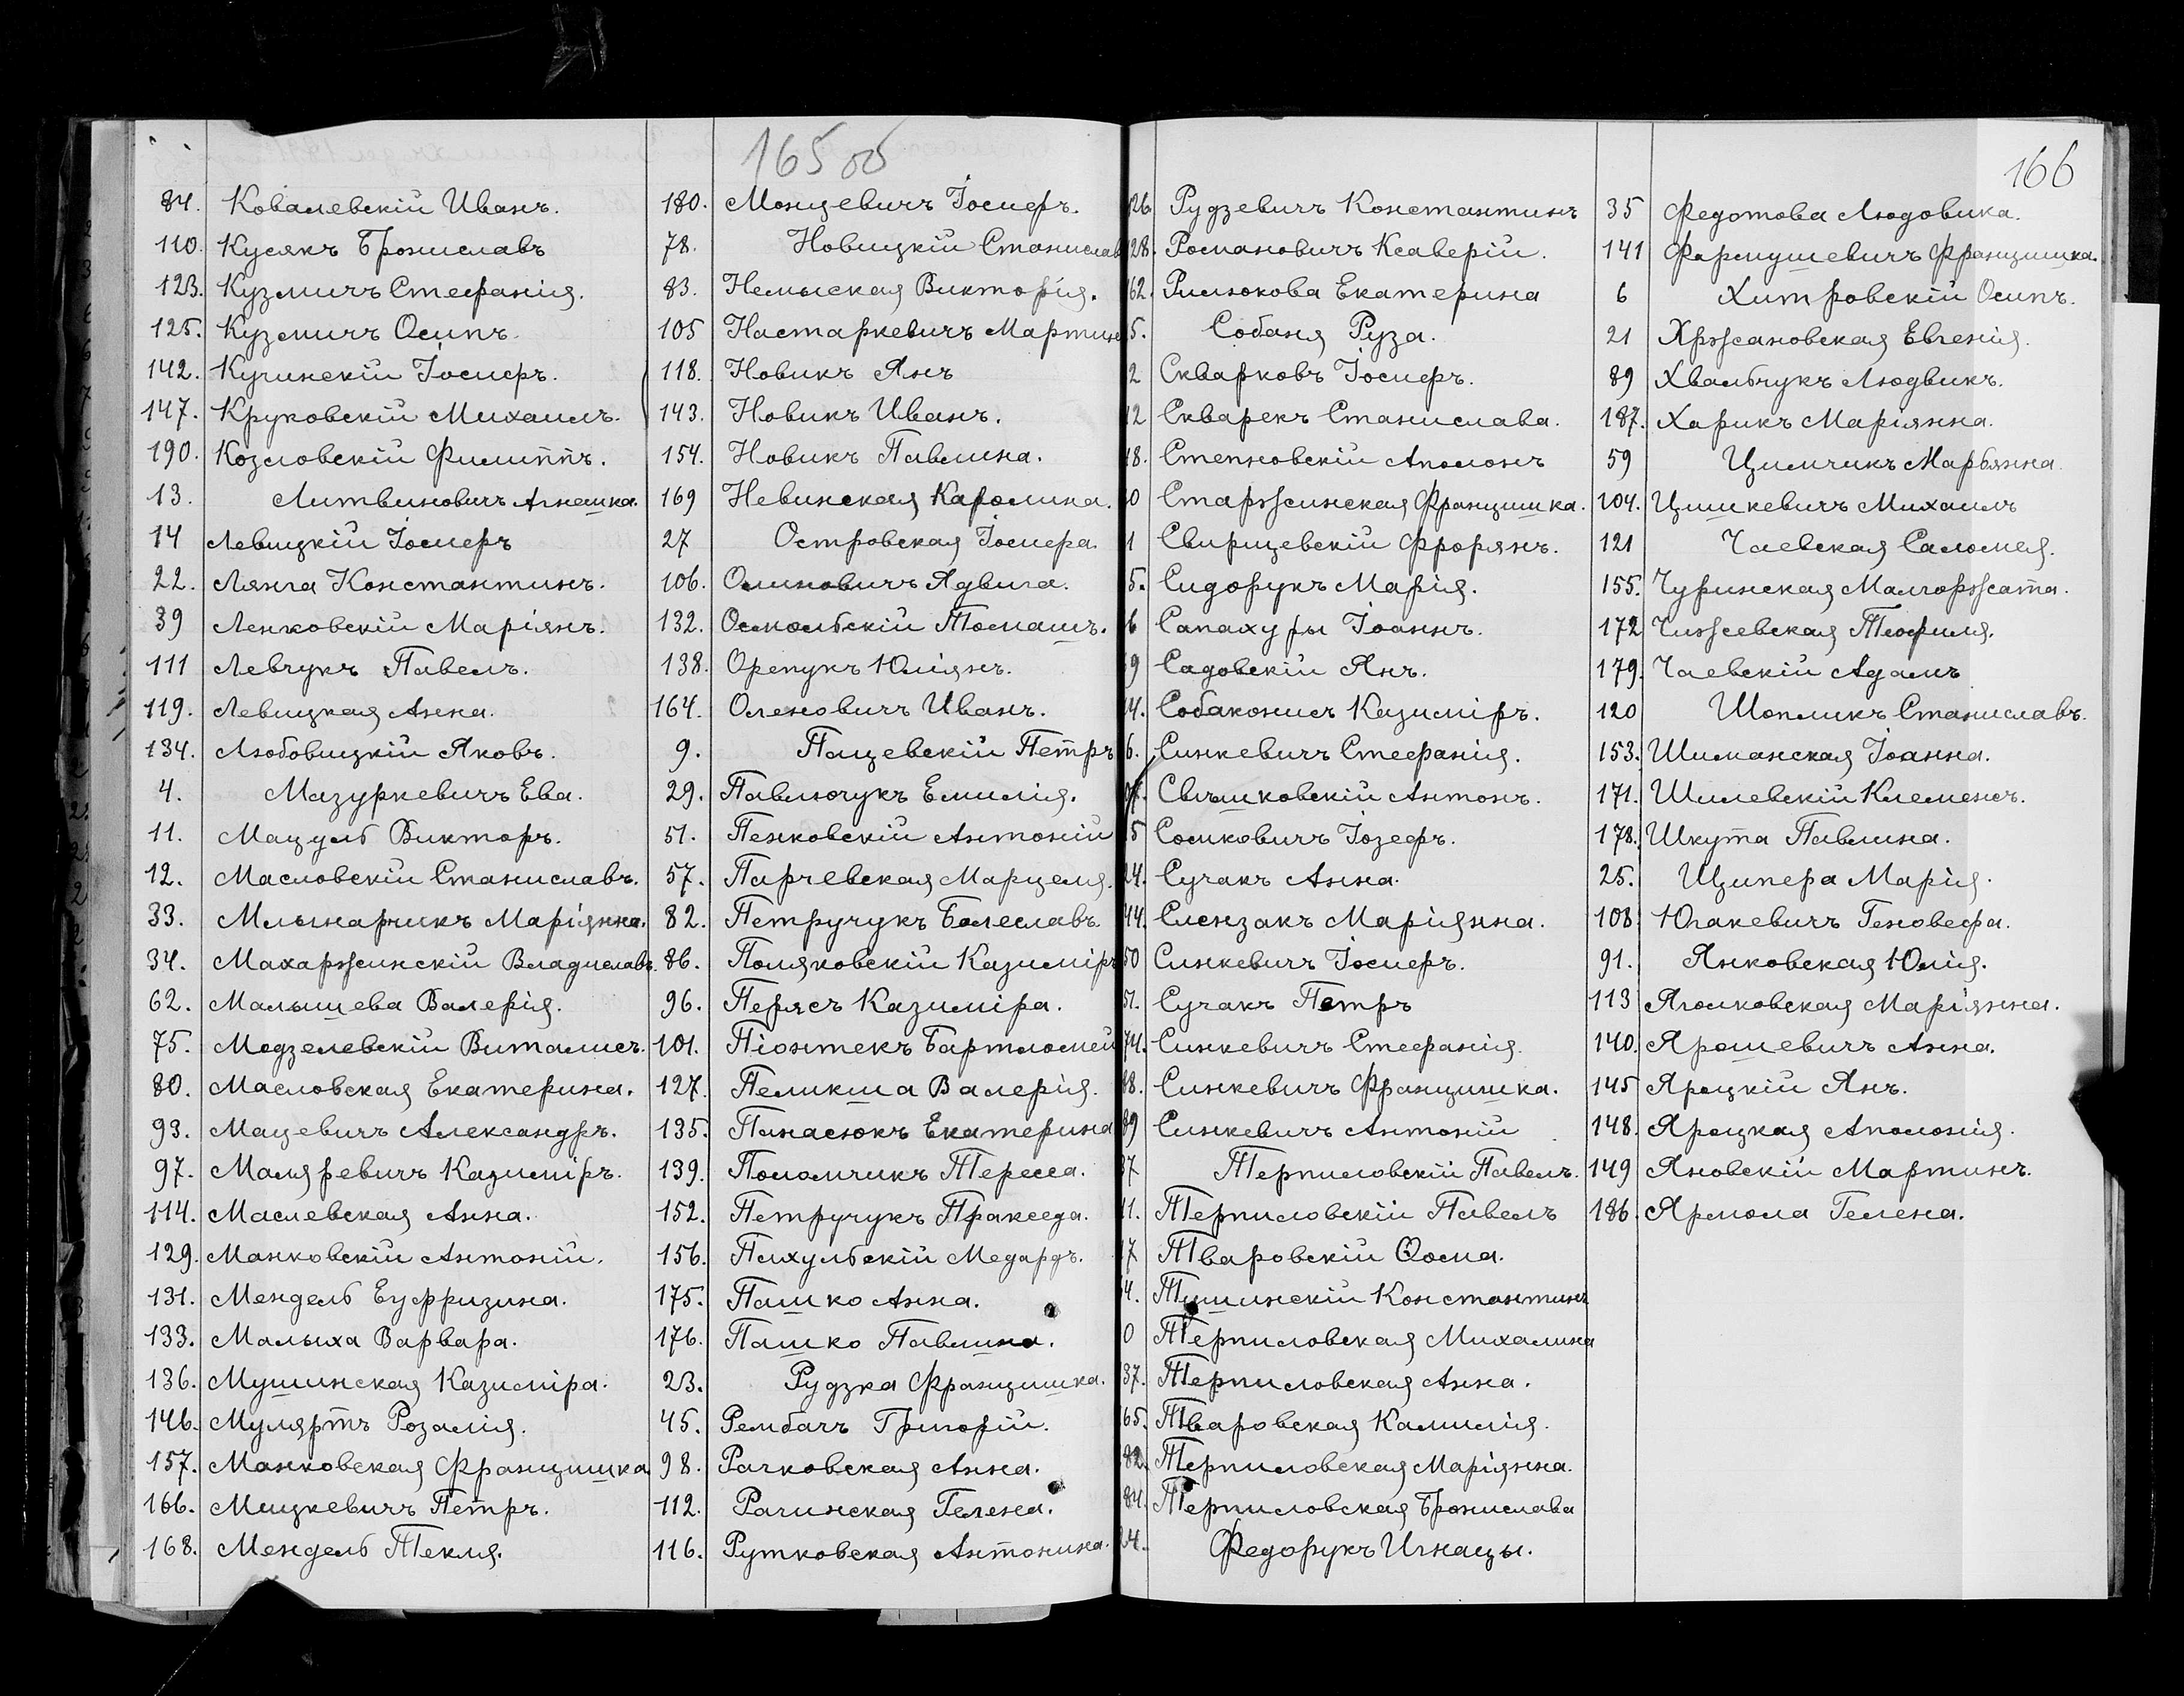 165 об
84. Ковалевскій Иванъ.
110. Кусякъ Брониславъ
123. Кузмичъ Стефанія.
125. Кузмичъ Осипъ.
142. Кучинскій Іосифъ.
147. Круковскій Михаилъ.
190. Козловскій Филиппъ.
13. Литвиновичъ Агнешка.
14 Левицкій Іосифъ
22. Лянга Константинъ.
39 Ленковскій Маріянъ.
111 Левчукъ Павелъ.
119. Левицкая Анна.
134. Любовицкій Яковъ.
4. Мазуркевичъ Ева.
11. Мацуль Викторъ.
12. Масловскій Станиславъ.
33. Млынарчикъ Маріянна.
34. Махаржинскій Владиславъ.
62. Малышева Валерія.
75. Модзелевскій Виталисъ.
80. Масловская Екатерина.
93. Мацевичъ Александръ.
97. Маляревичъ Казиміръ.
114. Маслевская Анна.
129. Манковскій Антоній.
131. Мендель Еуфризина.
133. Малыха Варвара.
136. Мушинская Казиміра.
146. Муляртъ Розалія.
157. Манковская Францишка
166. Мицкевичъ Петръ.
168. Мендель Текля.
180. Монцевичъ Іосифъ.
78. Новицкій Станислав
83. Немыская Викторія.
105 Настаркевичъ Мартин
118. Новикъ Янъ
143. Новикъ Иванъ.
154. Новикъ Павлина.
169 Невинская Каролина.
27 Островская Іосифа.
106. Олиновичъ Ядвига.
132. Осмольскій Томашъ.
138. Орепукъ Юліянъ.
164. Оленовичъ Иванъ.
9. Пацевскій Петръ
29. Павлючукъ Емилія.
51. Пенковскій Антоній
57. Парчевская Марцеля.
82. Петручукъ Болеславъ.
86. Поляковскій Казиміръ
96. Перясъ Казиміра.
101. Піонтекъ Бартломей
127. Пеликша Валерія.
135. Панасюкъ Екатерина
139. Поломчикъ Тереса.
152. Петручукъ Пракседа.
156. Психульскій Медардъ.
175. Пашко Анна.
176. Пашко Павлина.
23. Рудзка Францишка.
45. Рембачъ Григорій.
98. Рачковская Анна.
112. Рачинская Гелена.
116. Рутковская Антонина.
166
26 Рудзевичъ Константинъ
28. Романовичъ Ксаверій.
62. Рилюкова Екатерина
5. Собаня Руза.
2 Скварковъ Іосифъ.
12 Скварекъ Станислава.
18. Степновскій Аполонъ
0 Старжинская Францишка.
1 Свирщевскій Фрорянъ.
5. Сидорукъ Марія.
6 Сапахуры Іоаннъ.
9 Садовскій Янъ.
4. Собаконисъ Казиміръ.
6. Синкевичъ Стефанія.
Свѣшковскій Антонъ.
5 Сомковичъ Іозефъ.
24. Сучакъ Анна.
44. Слензакъ Маріянна.
50 Синкевичъ Іосифъ.
51. Сучакъ Петръ
74. Синкевичъ Стефанія.
8. Синкевичъ Францишка.
89 Синкевичъ Антоній
37 Терпиловскій Павелъ.
11. Терпиловскій Павелъ
17 Тваровскій Ѳома.
4. Тушинскій Константинъ
0 Терпиловская Михалина
37. Терпиловская Анна.
65. Тваровская Камилія.
82. Терпиловская Маріянна.
84. Терпиловская Бронислава
24. Федорукъ Игнацы.
35 Федотова Людовика.
141 Фармушевичъ Францишка.
6 Хитровскій Осипъ.
21 Хржановская Евгенія.
89 Хвальчукъ Людвикъ.
187. Харикъ Маріянна.
59 Цимчикъ Марьянна.
104. Цишкевичъ Михаилъ
121 Чаевская Саломея.
155. Чуринская Малгоржата.
172 Чижевская Теофиля.
179. Чаевскій Адамъ
120 Шопликъ Станиславъ.
153. Шиманская Іоанна.
171. Шилевскій Клеменсъ.
178. Шкута Павлина.
25. Щипера Марія.
108 Югакевичъ Геновефа.
91. Янковская Юлія.
113 Ягомковская Маріянна.
140. Ярошевичъ Анна.
145 Яроцкій Янъ.
148. Яроцкая Аполонія.
149 Яновскій Мартинъ.
186. Ярмола Гелена.